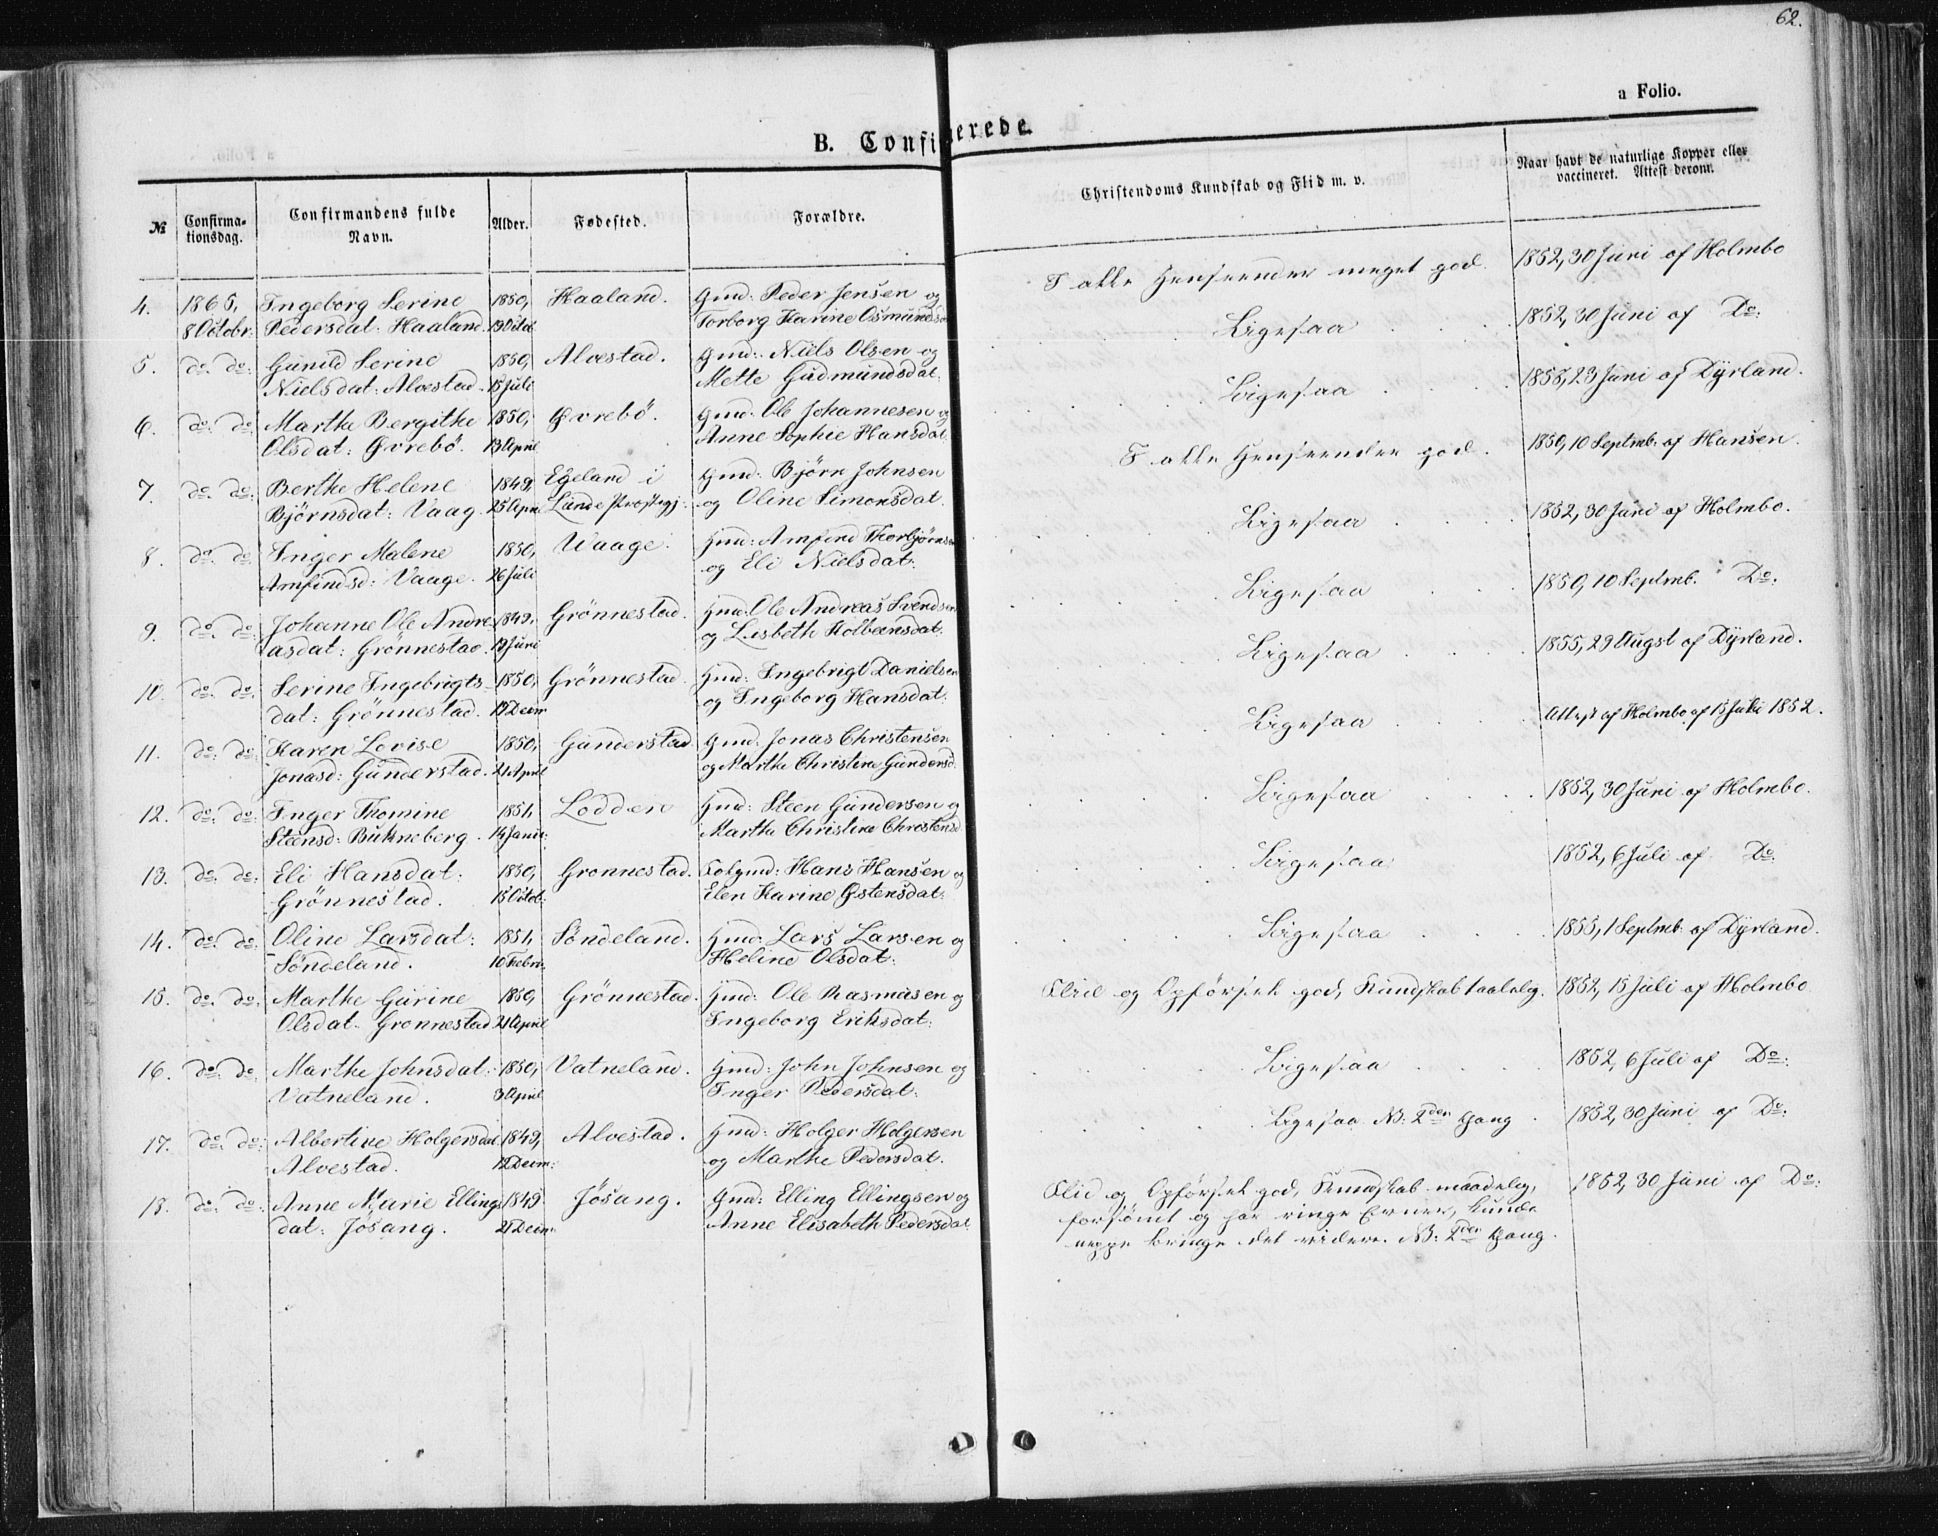 62.
a Folio.
B. Confirmerede.
№
Confirma-
tionsdag.
Confirmandens fulde
Navn.
Alder.
Fødested.
Forældre.
Christendoms Kundskab og Flid m. v.
Naar havt de naturlige Kopper eller
vaccineret. Attest derom.
4. 1865, Ingeborg Serine 1850, Haaland. Gmd: Peder Jensen og I alle Henseender meget god. 1852, 30 Juni af Holmbo
8 Octobr: Pedersdat: Haaland. 19 Octob Torborg Karine Osmunds
5. do. do: Gunild Serine 1850, Alvestad. Gmd: Niels Olsen og Ligesaa 1852, 30 Juni af Do:
Nielsdat: Alvestad. 15 Juli Mette Gudmundsdat:
6. do: do: Marthe Bergithe 1850, Øvrebö. Gmd: Ole Johannesen og Ligesaa 1858, 23 Juni af Dyrland.
Olsdat: Øvrebö. 13 April Anne Sophie Hansdat
7. do. do: Berthe Helene 1849, Egeland i Gmd: Björn Johnsen I alle Henseender god. 1850, 10 Septmb: af Hansen.
Björnsdat: Vaag. 25 Apri Lunde Præstegj: og Oline Simonsdat.
8. do: do Inger Malene 1850, Waage. Hmd: Arnfind Thorbjørnsen Ligesaa 1852, 30 Juni af Holmbo.
Arnfindsd: Vaage. 26 Juli og Eli Nielsdat:
9. do: do: Johanne Ole Andre- 1849, Grönnestad. Hmd: Ole Andreas Svendsen Ligesaa 1850, 10 Septmb. Do:
asdat: Grönnestad. 19 Juni og Lisbeth Kolbensdat:
10. do: do: Serine Ingebrigts- 1850, Grönnestad. Hmd: Ingebrigt Danielsen Ligesaa 1855, 29 Augst af Dyrland.
dat: Grönnestad. 19 Decm og Ingeborg Hansdat:
11. do: do: Karen Lovise 1850, Gunderstad Gmd: Jonas Christensen Ligesaa Attest af Holmbo af 15 Juli 1852.
Jonasd: Gunderstad. 21 April og Marthe Christine Gundersd:
12. do: do: Inger Thomine 1851, Lodden Hmd: Steen Gundersen og Ligesaa 1852, 30 Juni af Holmbo.
Steensd: Bukneberg. 14 Janu: Marthe Christine Christensd
13. do: do: Eli Hansdat: 1850, Grönnestad. Hans Hansen og Ligesaa 1852, 6 Juli af Do:
Grönnestad. 15 Octob: Elen Karine Østensdat:
14. do: do: Oline Larsdat: 1851, Söndeland. Hmd: Lars Larsen og Ligesaa 1855, 1 Septmb: af Dyrland.
Söndeland. 10 Febru: Heline Olsdat:
15. do: do: Marthe Gurine 1850, Grönnestad. Hmd: Ole Rasmusen og Flid og Opførsel god, Kundskab taalelig. 1852, 15 Juli af Holmbo
Olsdat. Grönnestad 21 April Ingeborg Eriksdat:
16. do: do: Marthe Johnsdat: 1850, Vatneland. Hmd: John Johnsen og Ligesaa 1852, 6 Juli af Do:
Vatneland. 3 April Inger Pedersdat:
17. do: do: Albertine Holgersdat 1849, Alvestad. Hmd: Holger Holgersen Ligesaa NB: 2den Gang. 1852, 30 Juni af Do:
Alvestad. 12 Decm: og Marthe Pedersdat.
18. do: do: Anne Marie Ellings 1849 Jösang. Gmd: Elling Ellingsen og Flid og Opførsel god, Kundskab maadelig, 1852, 30 Juni af Do:
dat: Jösang. 21 Decm: Anne Elisabeth Pedersdat: forsömt og har ringe Evner, kunde
neppe bringe det videre. NB: 2den Gang.